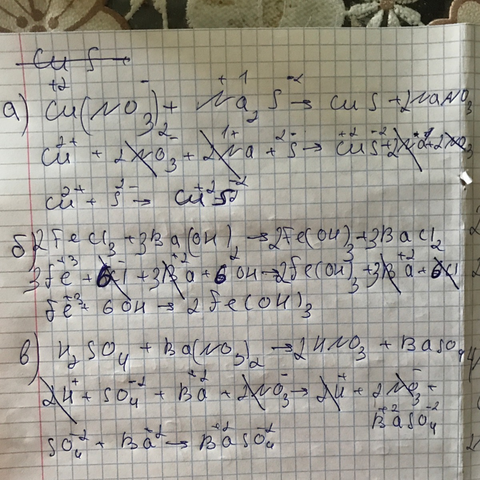 Cu S
а) Cu⁺²(NO₃)₂⁻ + Na₂⁺¹S⁻² → CuS + 2NaNO₃
Cu²⁺ + 2NO₃⁻ + 2Na¹⁺ + S²⁻ → Cu⁺²S⁻² + 2Na⁺ + 2NO₃
Cu²⁺ + S²⁻ → Cu⁺²S⁻²
б) 2FeCl₃ + 3Ba(OH)₂ → 2Fe(OH)₃ + 3BaCl₂
3Fe⁺³ + 6Cl⁻ + 3Ba⁺² + 6OH⁻ → 2Fe(OH)₃ + 3Ba⁺² + 6Cl
Fe⁺³ + 6OH → 2Fe(OH)₃
в) H₂SO₄ + Ba(NO₃)₂ → 2HNO₃ + BaSO₄
2H⁺ + SO₄⁻² + Ba⁺² + 2NO₃⁻ → 2H⁺ + 2NO₃⁻ +
Ba⁺²SO₄⁻²
SO₄⁻² + Ba⁺² → Ba⁺²SO₄⁻²